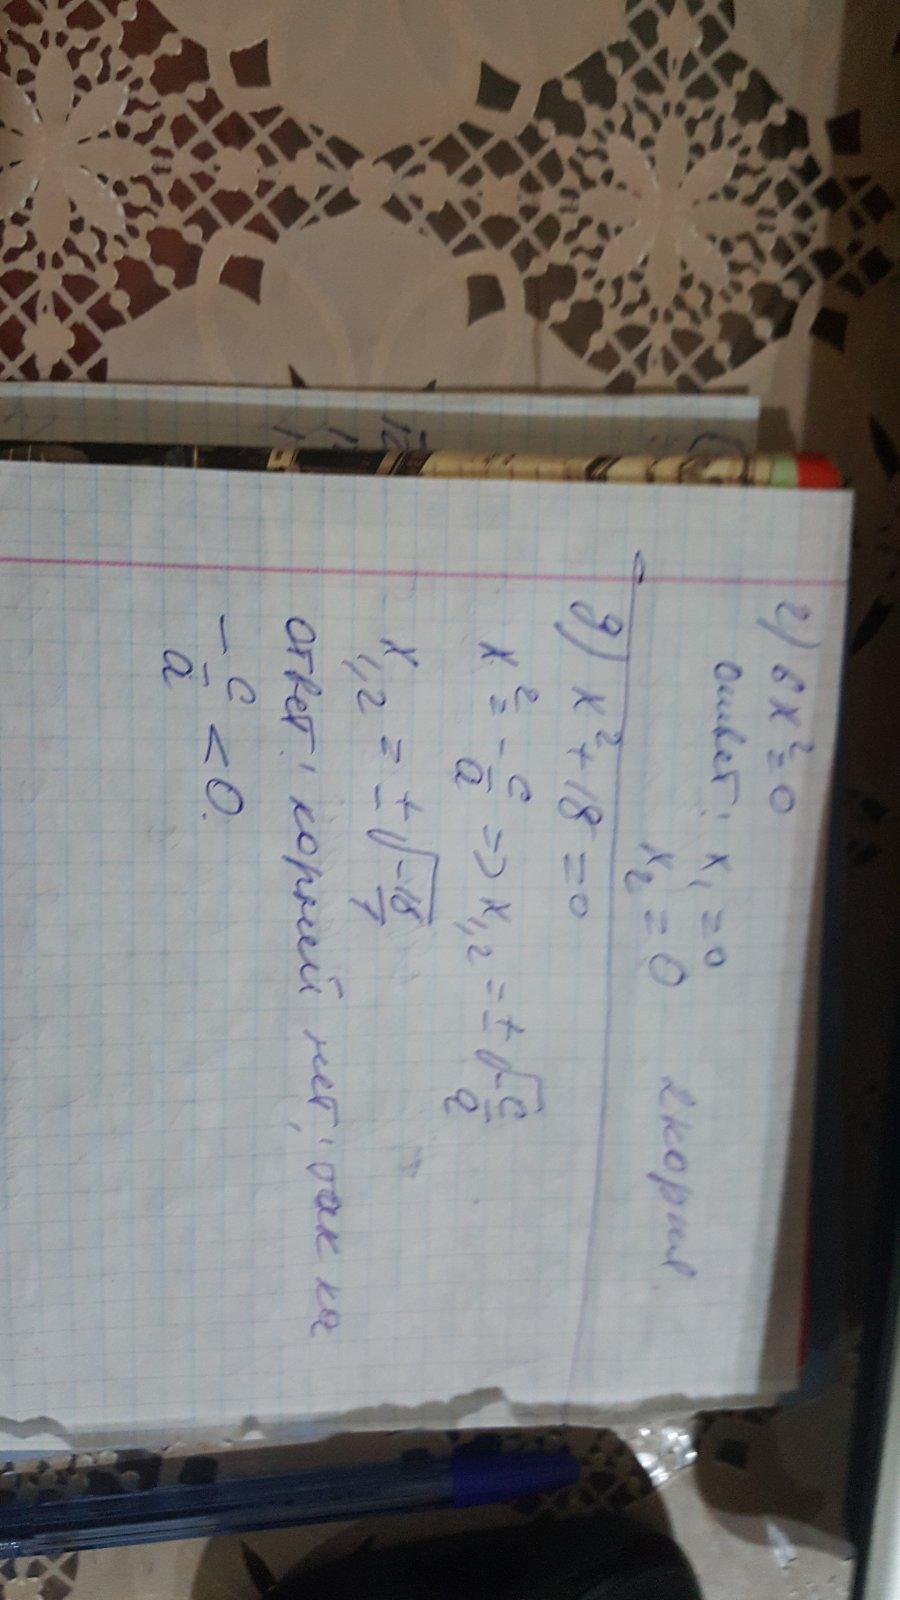 г) 6x²=0
ответ: x₁=0
x₂=0 2 корня.
д) x²+18=0
x²=-c/a => x₁,₂=±√-c/a
x₁,₂=±√-18/1
ответ: корней нет, так как
-c/a<0.